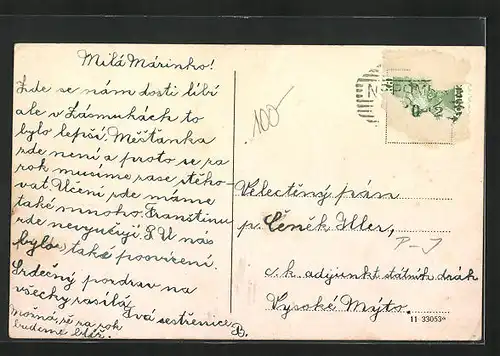 Milá Márinko!
Zde se nám dosti líbí
ale v Zásmukách to
bylo lepší. Měšťanka
zde není a proto se za
rok musíme zase stěho-
vat. Učení zde máme
také mnoho. Franštinu
zde nevyučují. U nás
bylo také posvícení.
Srdečný pozdrav na
všecky zasílá
Tvá sestřenice B.
Možná, že za rok
budeme blíž.
100-
Velectěný pán
p. Čeněk Iller,
P-J
c. k. adjunkt státních drah
Vysoké Mýto.
11 33053*